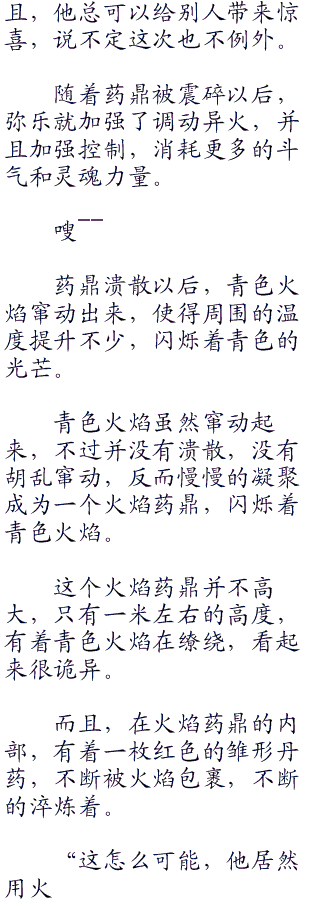 且，他总可以给别人带来惊
喜，说不定这次也不例外。
随着药鼎被震碎以后，
弥乐就加强了调动异火，并
且加强控制，消耗更多的斗
气和灵魂力量。
嗖——
药鼎溃散以后，青色火
焰窜动出来，使得周围的温
度提升不少，闪烁着青色的
光芒。
青色火焰虽然窜动起
来，不过并没有溃散，没有
胡乱窜动，反而慢慢的凝聚
成为一个火焰药鼎，闪烁着
青色火焰。
这个火焰药鼎并不高
大，只有一米左右的高度，
有着青色火焰在缭绕，看起
来很诡异。
而且，在火焰药鼎的内
部，有着一枚红色的雏形丹
药，不断被火焰包裹，不断
的淬炼着。
“这怎么可能，他居然
用火